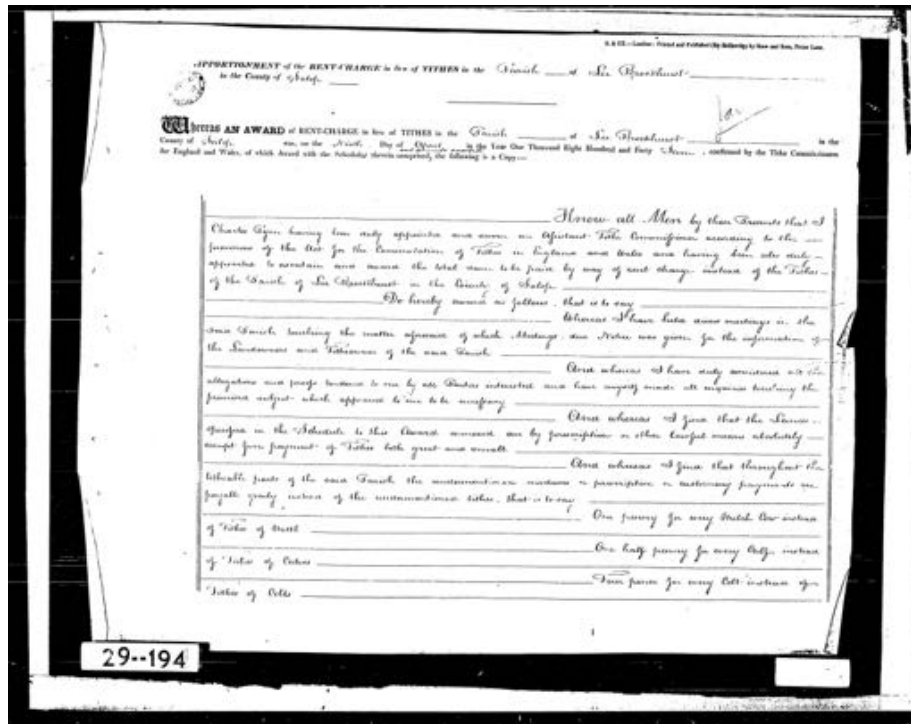 S. & CO.—London: Printed and Published (By Authority) by Shaw and Sons, Fetter Lane.
APPORTIONMENT of the RENT-CHARGE in lieu of TITHES in the Parish of Lee Brockhurst
in the County of Salop
Whereas AN AWARD of RENT-CHARGE in lieu of TITHES in the Parish of Lee Brockhurst in the
County of Salop was, on the Ninth Day of April in the Year One Thousand Eight Hundred and Forty confirmed by the Tithe Commissioners
for England and Wales, of which Award with the Schedules therein comprised, the following is a Copy:—
Know all Men by these Presents that I
Charles Pym having been duly appointed and sworn an Assistant Tithe Commissioner according to the
provisions of the Act for the Commutation of Tithes in England and Wales and having been also duly
appointed to ascertain and award the total sum to be paid by way of rent charge instead of the Tithes
of the Parish of Lee Brockhurst in the County of Salop
Do hereby award as follows, that is to say
Whereas I have held divers meetings in the
said Parish touching the matter aforesaid of which Meetings due Notice was given for the information of
the Landowners and Titheowners of the said Parish
And whereas I have duly considered all the
allegations and proofs tendered to me by all Parties interested and have myself made all inquiries touching the
premises subject which appeared to me to be necessary
And whereas I find that the Lands
specified in the Schedule to this Award annexed are by prescription or other lawful means absolutely
exempt from payment of Tithes both great and small
And whereas I find that throughout the
titheable parts of the said Parish the undermentioned moduses or prescriptive or customary payments are
payable yearly instead of the undermentioned tithes, that is to say
One penny for every Milch Cow instead
of Tithe of Milk
One half penny for every Calf instead
of Tithes of Calves
Four pence for every Colt instead of
Tithes of Colts
29--194